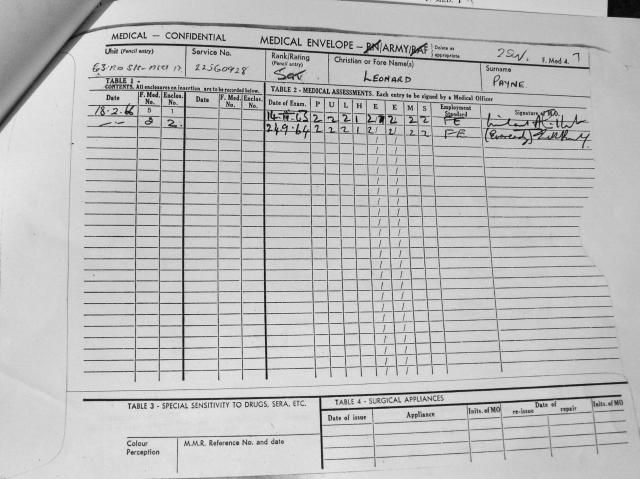 MEDICAL — CONFIDENTIAL MEDICAL ENVELOPE — RN/ARMY/RAF Delete as appropriate F. Med 4. 7
Unit (Pencil entry) Service No. Rank/Rating (Pencil entry) Christian or Fore Name(s) Surname
22560928 LEONARD PAYNE
TABLE 1 - CONTENTS. All enclosures on insertion are to be recorded below.
TABLE 2 - MEDICAL ASSESSMENTS. Each entry to be signed by a Medical Officer
Date F. Med. No. Enclos. No. Date F. Med. No. Enclos. No. Date of Exam. P U L H E E M S Employment Standard Signature of M.O.
18-2-66 5 1 2 2 2 1 2 2 2 FE
2 2 24.9.64 2 2 2 1 2 2 2 FE
TABLE 3 - SPECIAL SENSITIVITY TO DRUGS, SERA, ETC.
Colour Perception M.M.R. Reference No. and date
TABLE 4 - SURGICAL APPLIANCES
Date of issue Appliance Inits. of MO Date of re-issue repair Inits. of MO